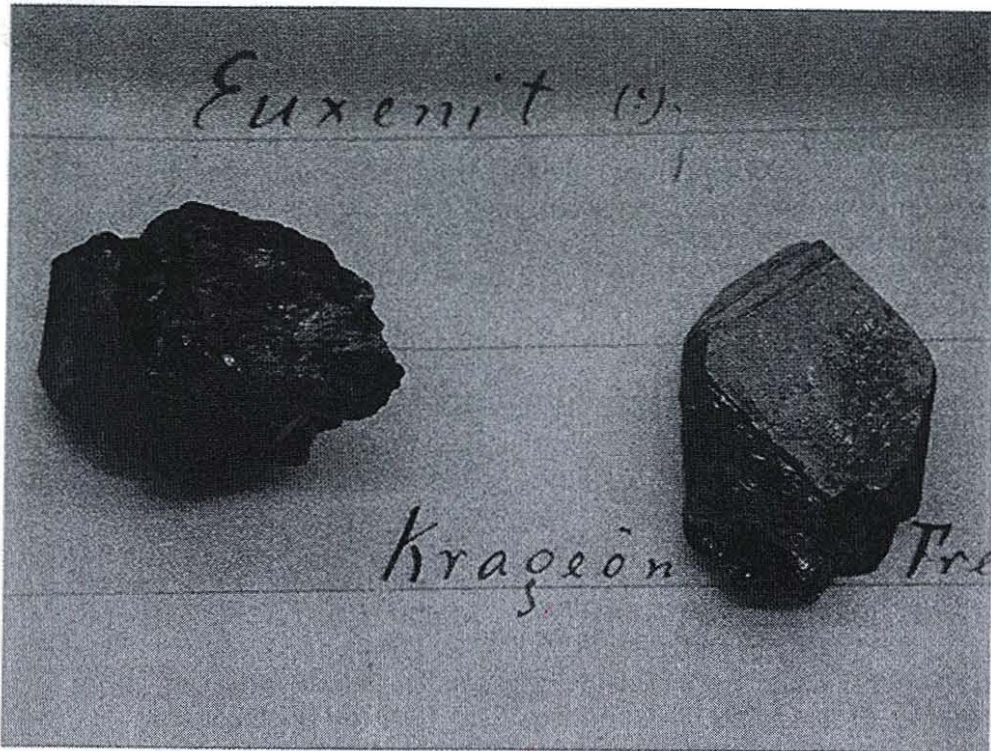 Euxenit (?).
Krageön Tre